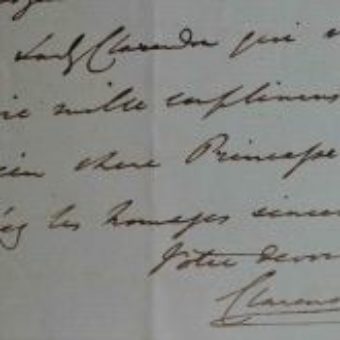 Lady Clarendon qui
mille complimens
chere Princesse
les homages sincer
Votre devou
Claren